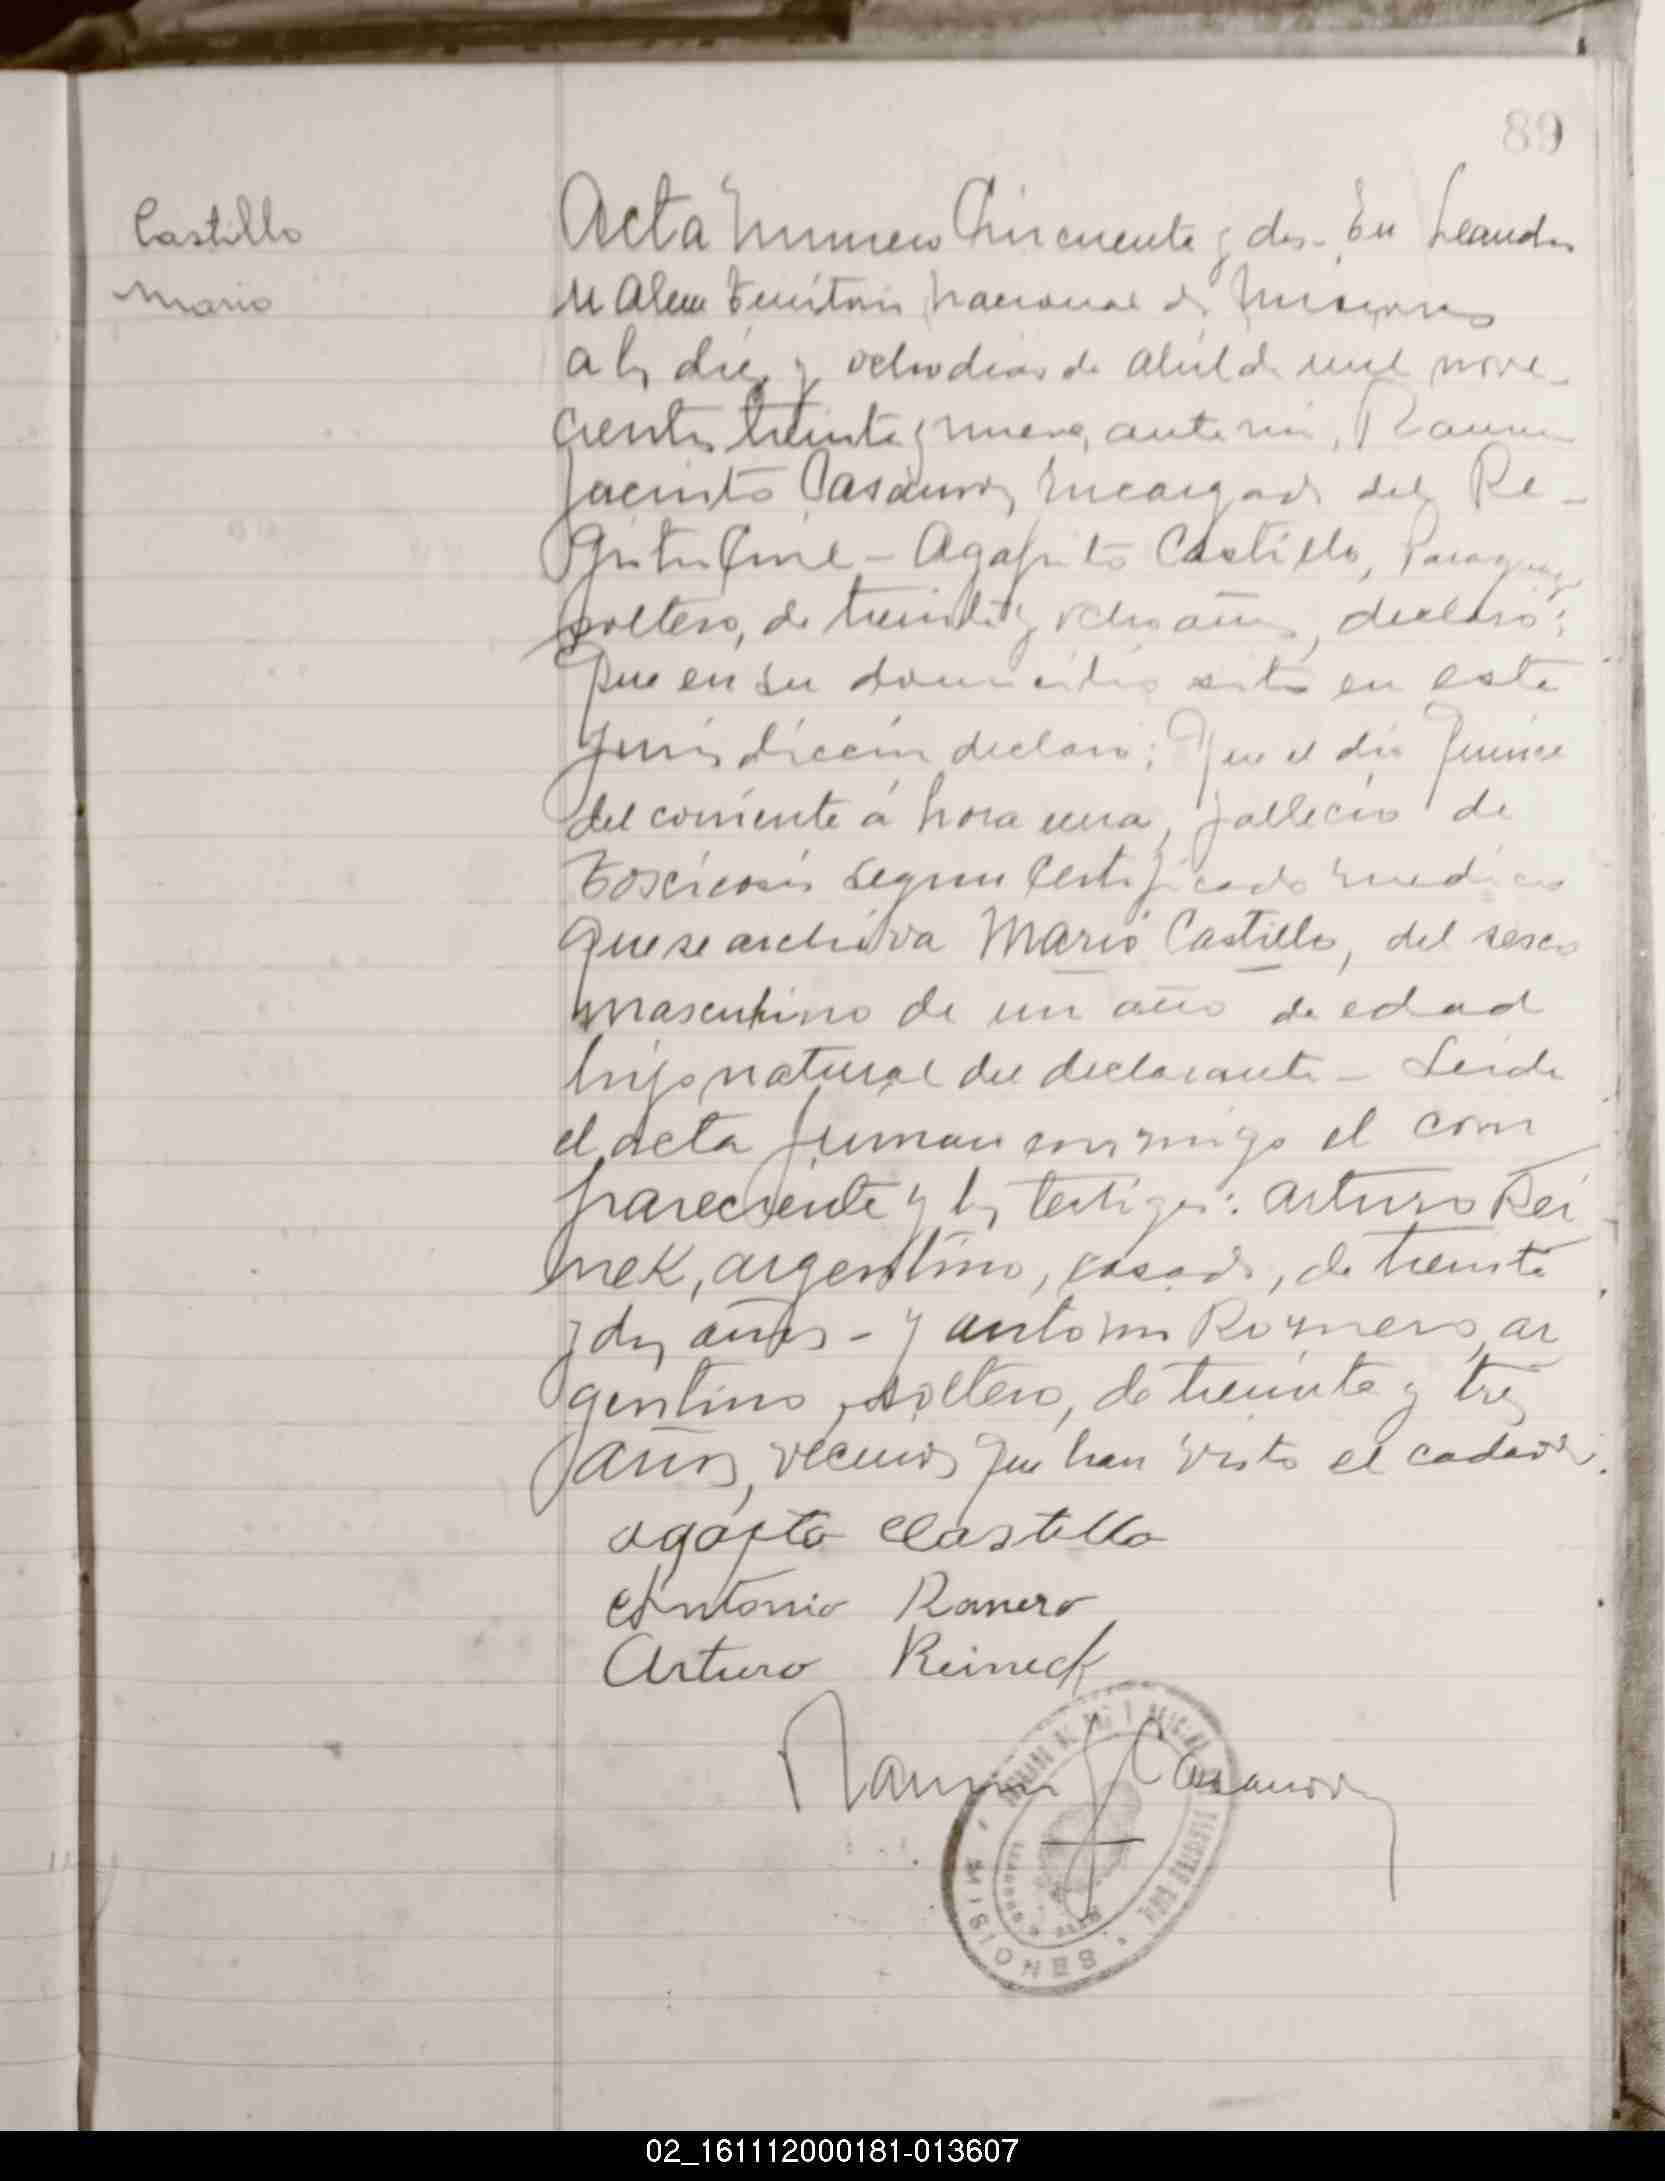 89
Castillo
Mario
Acta Numero Cincuenta y dos - En Leandro
N Alem Territorio Nacional de Misiones
a los diez y ocho dias de Abril de mil nove-
cientos treinta y nueve, ante mi, Ramon
Jacinto Casanova, Encargado del Re-
gistro Civil - Agapito Castillo, Paraguayo
soltero, de treinta y ocho años, declaró:
Que en su domicilio sito en esta
jurisdiccion declaro; Que el dia quince
del corriente á hora una, fallecio de
Toscicosis segun certificado medico
que se archiva Mario Castillo, del sexo
masculino de un año de edad
hijo natural del declarante - Leida
el acta firman conmigo el com
pareciente y los testigos: Arturo Rei-
nek, argentino, casado, de treinta
y dos años - y Antonio Romero, ar
gentino, soltero, de treinta y tres
años, vecinos que han visto el cadaver.
Agapito Castillo
Antonio Romero
Arturo Reineck
Ramon J Casanova
MISIONES
02_161112000181-013607